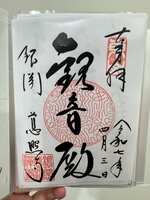 奉拝
令和七年
四月三日
観音殿
銀閣
慈照寺